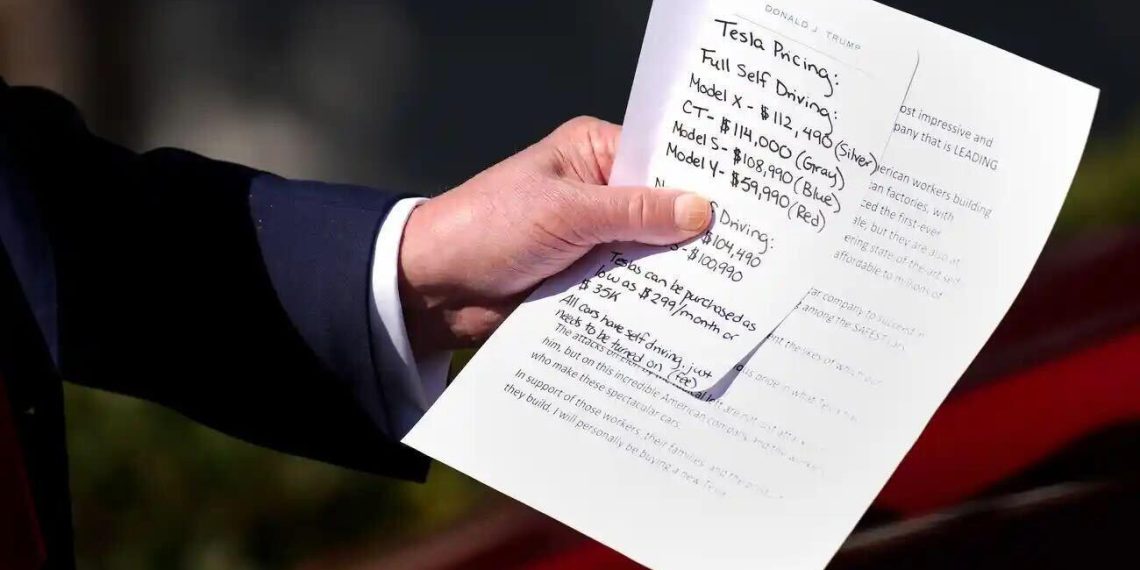 DONALD J. TRUMP
Tesla Pricing:
Full Self Driving:
Model X - $112,490 (Silver)
CT - $114,000 (Gray)
Model S - $108,990 (Blue)
Model Y - $59,990 (Red)
Driving:
$104,490
$100,990
Teslas can be purchased as
low as $299/month or
$35K
All cars have self driving, just
needs to be turned on (fee)
ost impressive and
pany that is LEADING
erican workers building
an factories, with
ced the first-ever
ale, but they are also at
ering state-of-the-art
affordable to millions of
ar company to succeed in
among the SAFEST
ent the likes of which our
The attacks on are not just
him, but on this incredible American company, and the
who make these spectacular cars.
In support of those workers, their families, and the
they build, I will personally be buying a new Tesla